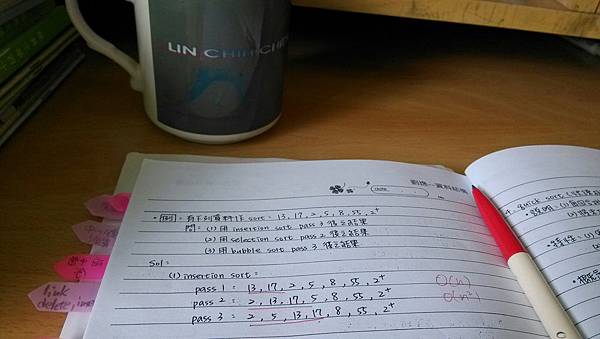 LIN CHIH CHEN
DATE
[例] 有下列資料作 sort: 13, 17, 2, 5, 8, 55, 2+
問: (1) 用 insertion sort pass 3 後之結果
(2) 用 selection sort pass 2 後之結果
(3) 用 bubble sort pass 3 後之結果
Sol:
(1) insertion sort:
pass 1 = 13, 17, 2, 5, 8, 55, 2+
pass 2 = 2, 13, 17, 5, 8, 55, 2+
pass 3 = 2, 5, 13, 17, 8, 55, 2+
O(n)
O(n²)
quick sort